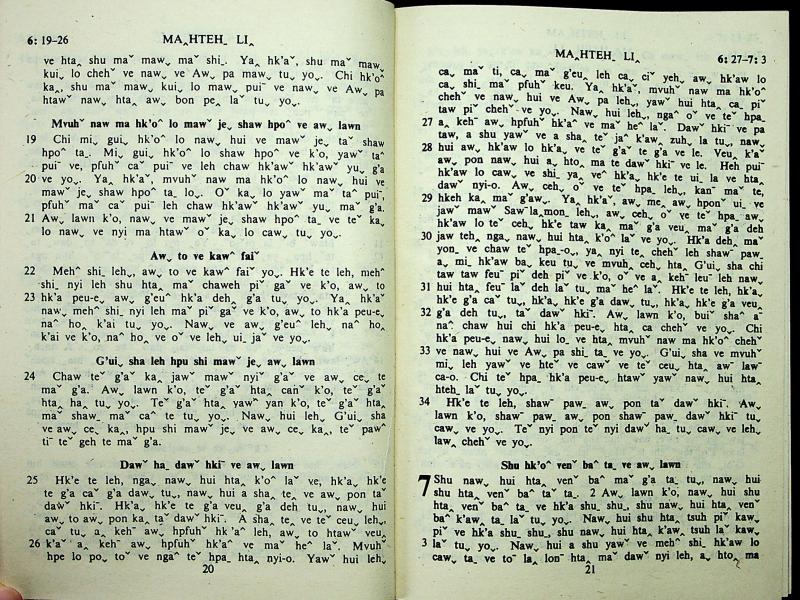 6: 19–26
MAꞈHTEHˍ LIꞈ
ve htaˬ shu maˇ mawˬ maˇ shiˍ. Yaꞈ hk'aˇ, shu maˇ mawˬ
kuiˬ lo chehˇ ve nawˬ ve Awˬ pa maw tuˬ yoˬ. Chi hk'oˆ
kaˬ, shu maˇ mawˬ kuiˬ lo mawˬ puiˉ ve nawˬ ve Awˬ pa
htawˇ nawˬ htaˬ awˬ bon peˬ laˇ tuˬ yoˬ.
Mvuhˇ naw ma hk'oˆ lo mawˇ jeˬ shaw hpoˆ ve awˬ lawn
19 Chi miˬ guiˬ hk'oˆ lo nawˬ hui ve mawˇ jeˬ taˇ shaw
hpoˆ taˍ. Miˬ guiˬ hk'oˆ lo shaw hpoˆ ve k'o, yawˇ taˆ
puiˉ ve, pfuhˇ caˇ puiˉ ve leh chaw hk'awˇ hk'awˇ yuˬ g'a
20 ve yoˬ. Yaꞈ hk'aˇ, mvuhˇ naw ma hk'oˆ lo nawˬ hui ve
mawˇ jeˬ shaw hpoˆ taˍ loˬ. Oˇ kaˍ lo yawˇ maˇ taˆ puiˉ,
pfuhˇ maˇ caˇ puiˉ leh chaw hk'awˇ hk'awˇ yuˬ maˇ g'a.
21 Awˬ lawn k'o, nawˬ ve mawˇ jeˬ shaw hpoˆ taˍ ve teˇ kaˍ
lo nawˬ ve nyi ma htawˇ oˇ kaˍ lo cawˬ tuˬ yoˬ.
Awˬ to ve kawˆ faiˇ
22 Mehˆ shiˍ lehˬ, aw to ve kawˆ faiˇ yoˬ. Hk'e te leh, mehˆ
shiˍ nyi leh shu htaˬ maˇ chaweh piˇ gaˇ ve k'o, awˬ to
23 hk'a peu-e, awˬ g'euˆ hk'a dehˬ g'a tuˬ yoˬ. Yaꞈ hk'aˇ
nawˬ mehˆ shiˍ nyi leh maˇ piˇ gaˇ ve k'o, awˬ to hk'a peu-e,
naˆ hoˬ k'ai tuˬ yoˬ. Nawˬ ve awˬ g'euˆ leh naˆ hoˬ
k'ai ve k'o, naˆ hoˬ ve oˇ ve lehˬ uiˬ jaˇ ve yoˬ.
G'uiˬ sha leh hpu shi mawˇ jeˬ awˬ lawn
24 Chaw teˇ g'aˇ kaˬ jawˇ mawˇ nyiˇ g'aˇ ve awˬ ceˬ te
maˇ g'a. Awˬ lawn k'o, teˇ g'aˇ htaˬ canˇ k'o, teˇ g'aˇ
htaˬ haˬ tuˬ yoˬ. Teˇ g'aˇ htaˬ yawˇ yan k'o, teˇ g'aˇ htaˬ
maˇ shawˬ maˇ caˆ te tuˬ yoˬ. Nawˬ hui leh, G'uiˬ sha
ve awˬ ceˬ kaˬ, hpu shi mawˇ jeˬ ve awˬ ceˬ kaˬ, teˇ pawˆ
tiˉ teˇ geh te maˇ g'a.
Dawˇ haˍ dawˇ hkiˉ ve awˬ lawn
25 Hk'e te leh, ngaˬ nawˬ hui htaˬ k'oˆ laˇ ve, hk'aˬ hk'e
te g'a caˇ g'a dawˇ tuˬ, nawˬ hui a shaˍ teˬ ve awˬ pon taˇ
dawˇ hkiˉ. Hk'aˬ hk'e te g'a veuˬ g'a deh tuˬ, nawˬ hui
aw to awˬ pon kaˍ taˇ dawˇ hkiˉ. A shaˍ teˬ ve teˇ ceuˬ lehˬ,
caˇ tuˬ aˬ kehˉ awˬ hpfuhˇ hk'aˆ leh, awˬ to htawˇ veuˬ
26 k'aˇ aˬ kehˉ awˬ hpfuhˇ hk'aˆ ve maˇ heˆ laˇ. Mvuhˇ
hpe lo poˬ toˇ ve ngaˆ teˇ hpaˍ htaˬ nyi-o. Yawˇ hui lehˬ
20
MAꞈHTEHˍ LIꞈ
6: 27–7: 3
caˬ maˇ ti, caˬ maˇ g'euˬ leh caˬ ciˇ yeh, awˬ hk'aw lo
caˬ shiˍ maˇ pfuhˇ keu. Yaꞈ hk'aˇ, mvuhˇ naw ma hk'oˆ
chehˇ ve nawˬ hui ve Awˬ pa lehˬ, yawˇ hui htaˬ caˍ piˇ
tawˬ piˇ chehˇ ve yoˬ. Nawˬ hui lehˬ, ngaˆ oˇ ve teˇ hpaˍ
27 aˬ kehˉ awˬ hpfuhˇ hk'aˆ ve maˇ heˆ laˇ. Dawˇ hkiˉ ve pa
taw, a shu yawˇ ve a shaˍ teˇ jaˇ k'awˬ zuhˬ la tuˬ, nawˬ
28 hui awˬ hk'aw lo hk'aˬ ve teˇ g'aˇ te g'a ve le. Veuˬ k'aˇ
awˬ pon nawˬ hui aˬ htoˬ ma te dawˇ hkiˉ ve le. Heh puiˉ
hk'aw lo cawˬ ve shiˍ yaˇ veˆ hk'aˬ hk'e te uiˍ la ve htaˬ
dawˇ nyi-o. Awˬ cehˬ oˇ ve teˇ hpaˍ lehˬ, kanˉ maˇ te,
29 hkeh kaˬ maˇ g'awˬ. Yaꞈ hk'aˇ, awˬ meˬ awˬ hponˇ uiˍ ve
jawˇ mawˇ Sawˇlaˬmon lehˬ, awˬ cehˬ oˇ ve teˇ hpaˍ aw
hk'aw lo teˇ cehˬ hk'e taw kaˬ maˇ g'a veuˬ maˇ g'a deh
30 jaw tehˬ ngaˬ nawˬ hui htaˬ k'oˆ laˇ ve yoˬ. Hk'a dehˬ maˇ
yonˬ ve chaw teˇ hpaˍ-oˬ, yaˬ nyi teˬ chehˇ leh shawˇ pawˬ
aˬ miˍ hk'aw baˬ keu tuˬ ve mvuhˬ cehˬ htaˬ G'uiˬ sha chi
taw taw feuˉ piˇ deh piˇ ve k'o, oˇ ve aˬ kehˉ leuˇ leh nawˬ
31 hui htaˬ feuˉ laˇ deh laˇ tuˬ maˇ heˆ laˇ. Hk'e te leh, hk'aˬ
hk'e g'a caˇ tuˬ, hk'aˬ hk'e g'a dawˇ tuˬ, hk'aˬ hk'e g'a veuˬ
32 g'a deh tuˬ, taˇ dawˇ hkiˉ. Awˬ lawn k'o, buiˇ shaˆ aˉ
naˆ chaw hui chi hk'a peu-eˬ htaˬ ca chehˇ ve yoˬ. Chi
hk'a peu-eˬ nawˬ hui loˍ ve htaˬ mvuhˇ naw ma hk'oˆ chehˇ
33 ve nawˬ hui ve Awˬ pa shiˍ taˍ ve yoˬ. G'uiˬ sha ve mvuhˇ
miˬ leh yawˇ ve hteˇ ve cawˇ ve teˇ ceuˬ htaˬ awˉ lawˇ
ca-o. Chi te teˇ hpaˍ hk'a peu-eˬ htawˇ yawˇ nawˬ hui htaˬ
htehˬ laˇ tuˬ yoˬ.
34 Hk'e te leh, shawˇ pawˬ awˬ pon taˇ dawˇ hkiˉ. Awˬ
lawn k'o, shawˇ pawˬ awˬ pon shawˇ pawˬ dawˇ hkiˉ tuˬ
cawˬ ve yoˬ. Teˇ nyi pon teˇ nyi dawˇ haˍ tuˬ cawˬ ve lehˬ,
lawˬ chehˇ ve yoˬ.
Shu hk'oˆ venˇ baˆ taˍ ve awˬ lawn
7 Shu nawˬ hui htaˬ venˇ baˆ maˇ g'a taˍ tuˬ, nawˬ hui
shu htaˬ venˇ baˆ taˇ taˍ. 2 Awˬ lawn k'o, nawˬ hui shu
htaˬ venˇ baˆ taˍ ve hk'a shuˍ shuˍ, shu nawˬ hui htaˬ venˇ
baˆ k'awˬ taˍ laˇ tuˬ yoˬ. Nawˬ hui shu htaˬ tsuh piˇ kawˬ
piˇ ve hk'a shuˍ shuˍ, shu nawˬ hui htaˬ k'awˬ tsuh laˇ kawˬ
3 laˇ tuˬ yoˬ. Nawˬ hui a shu yawˇ ve mehˆ shiˍ hk'aw lo
cawˬ taˍ ve toˉ laˬ lonˉ htaˬ maˇ dawˇ nyi leh, aˬ htoˬ ma
21